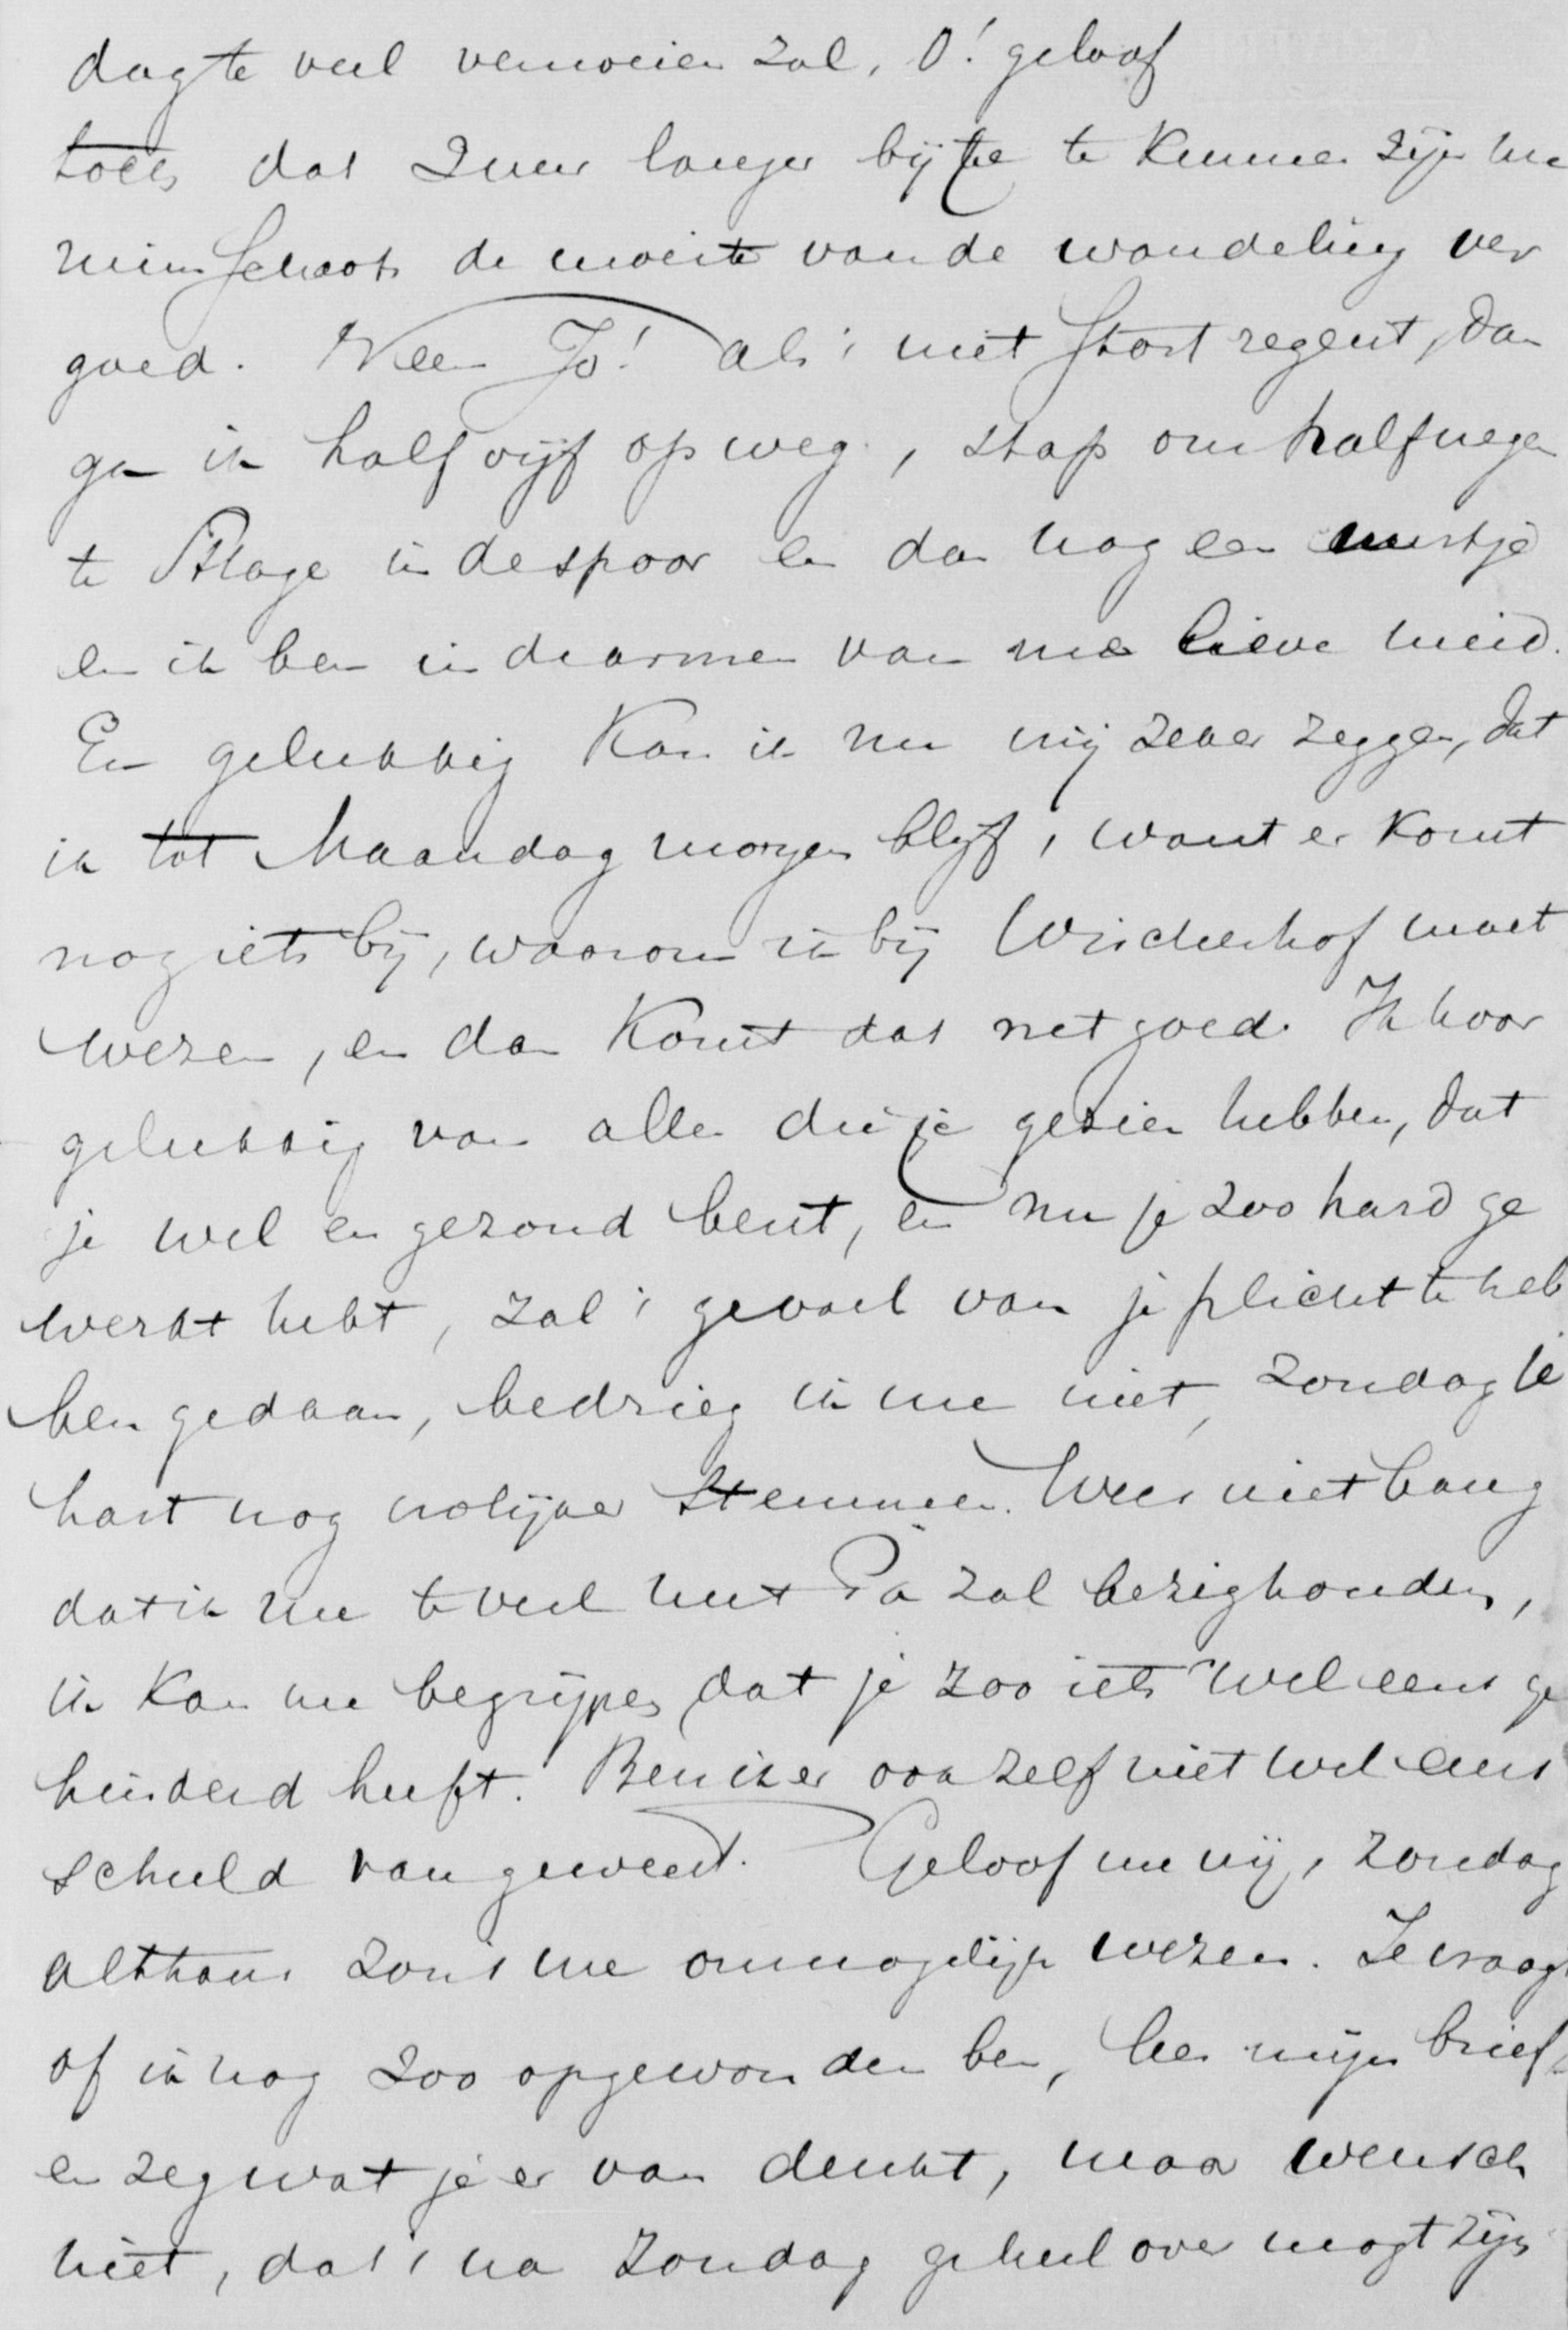 dag te veel vermoeien zal, O! geloof
toch dat 2 uur langer bij je te kunnen zijn me
ruimschoots de moeite van de wandeling ver
goed. Neen Jo! als 't niet stortregent, dan
ga ik half vijf op weg, stap om half negen
te Hage in de spoor en dan nog een uurtje
en ik ben in de armen van me lieve meid.
En gelukkig kan ik nu vrij zeker zeggen, dat
ik tot Maandag morgen blijf, want er komt
nog iets bij, waarom ik bij moet
wezen, en dan komt dat net goed. Ik hoor
gelukkig van allen die je gezien hebben, dat
je wel en gezond bent, en nu je zoo hard ge
werkt hebt, zal 't gevoel van je plicht te heb
ben gedaan, bedrieg ik me niet, Zondag je
hart nog vrolijker stemmen. Wees niet bang
dat ik me te veel met Pa zal bezighouden,
ik kan me begrijpen dat je zoo iets wel eens ge
hinderd heeft. Ben ik er ook zelf niet wel eens
schuld van geweest. Geloof me vrij, Zondag
althans zou 't me onmogelijk wezen. Je vraagt
of ik nog zoo opgewonden ben, lees mijn brief
en zeg wat je er van denkt, maar wensch
niet, dat 't na Zondag geheel over mogt zijn